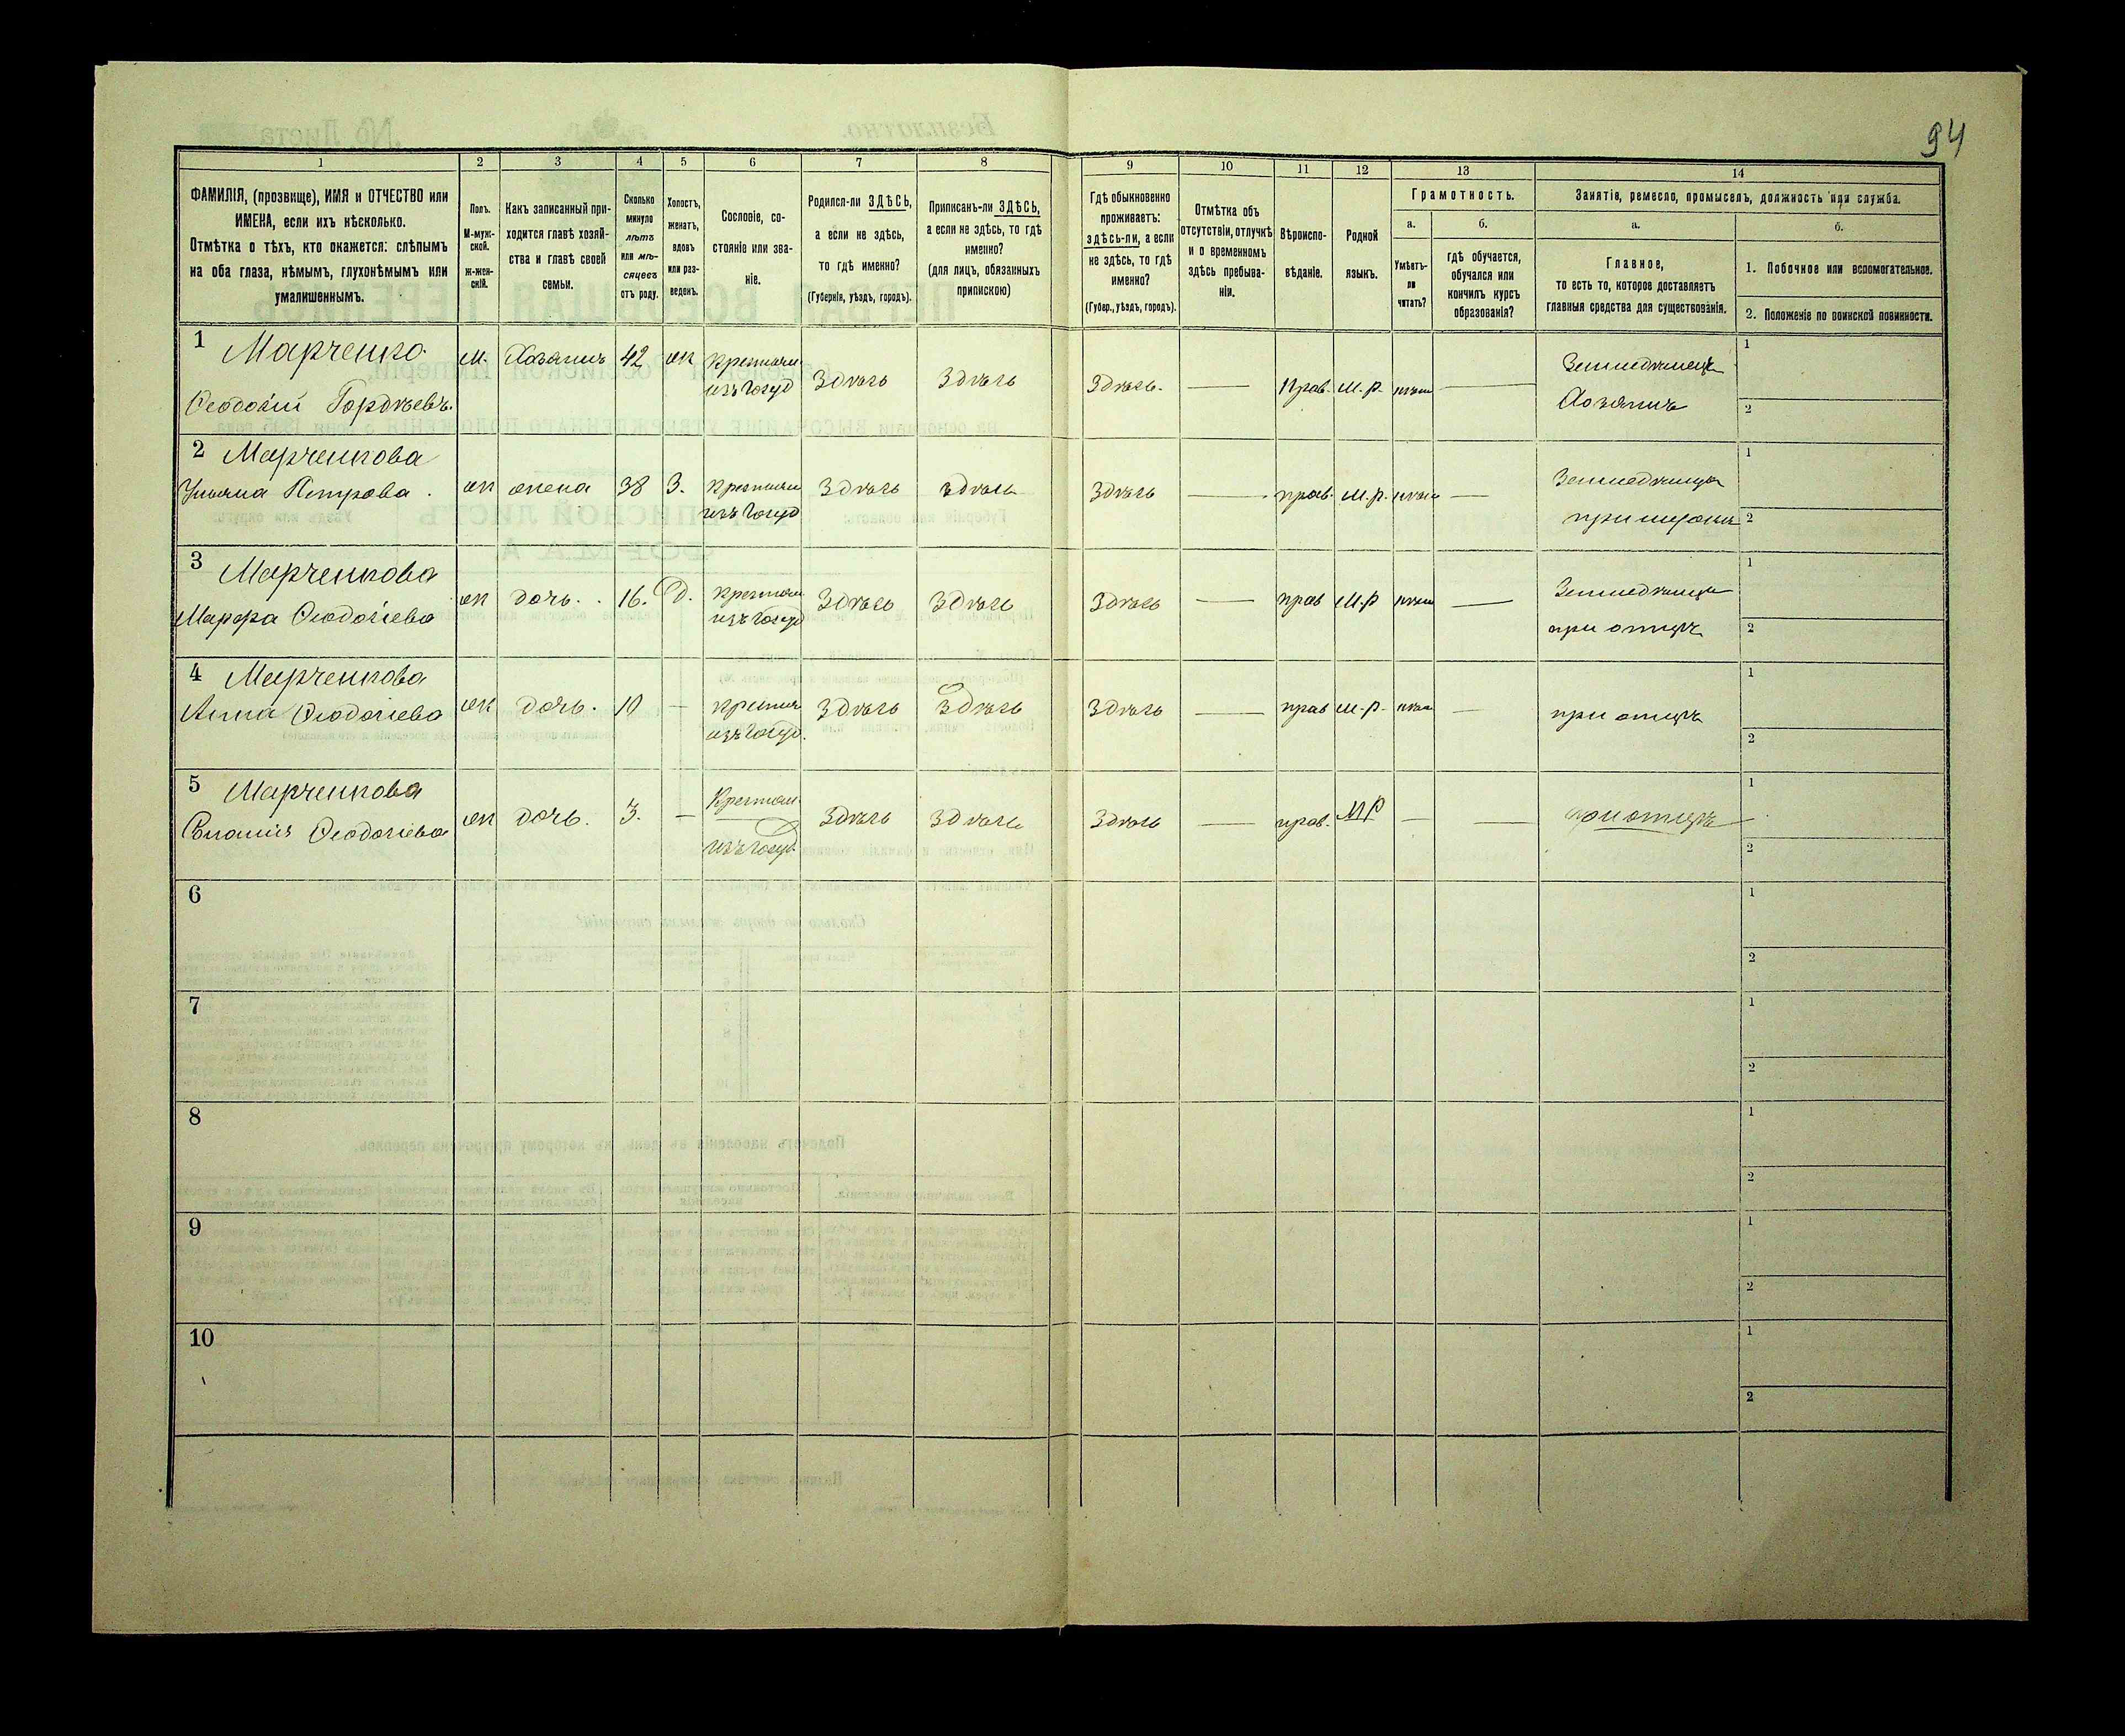 94
1 2 3 4 5 6 7 8 9 10 11 12 13 14
ФАМИЛІЯ, (прозвище), ИМЯ и ОТЧЕСТВО или
ИМЕНА, если ихъ нѣсколько.
Отмѣтка о тѣхъ, кто окажется: слѣпымъ
на оба глаза, нѣмымъ, глухонѣмымъ или
умалишеннымъ.
Полъ.
М-муж-
ской.
ж-жен-
скій.
Какъ записанный при-
ходится главѣ хозяй-
ства и главѣ своей
семьи.
Сколько
минуло
лѣтъ
или мѣ-
сяцевъ
отъ роду.
Холостъ,
женатъ,
вдовъ
или раз-
веденъ.
Сословіе, со-
стояніе или зва-
ніе.
Родился-ли ЗДѢСЬ,
а если не здѣсь,
то гдѣ именно?
(Губернія, уѣздъ, городъ).
Приписанъ-ли ЗДѢСЬ,
а если не здѣсь, то гдѣ
именно?
(для лицъ, обязанныхъ
припискою)
Гдѣ обыкновенно
проживаетъ:
здѣсь-ли, а если
не здѣсь, то гдѣ
именно?
(Губер., уѣздъ, городъ).
Отмѣтка объ
отсутствіи, отлучкѣ
и о временномъ
здѣсь пребыва-
ніи.
Вѣроиспо-
вѣданіе.
Родной
языкъ.
Грамотность.
а.
Умѣетъ-
ли
читать?
б.
гдѣ обучается,
обучался или
кончилъ курсъ
образованія?
Занятіе, ремесло, промыселъ, должность или служба.
а.
Главное,
то есть то, которое доставляетъ
главныя средства для существованія.
б.
1. Побочное или вспомогательное.
2. Положеніе по воинской повинности.
1 Марченко
Ѳеодосій Гордѣевъ.
м. Хозяинъ 42 жн
Крестьян
изъ Госуд
Здѣсь Здѣсь Здѣсь. — Прав. М.р. нѣт —
Земледѣлецъ
Хозяинъ
1
2
2 Марченкова
Ульяна Петрова.
жн жена 38 З.
Крестьян
изъ Госуд
Здѣсь здѣсь Здѣсь — прав. М.р. нѣт —
Земледѣлица
при мужѣ
1
2
3 Марченкова
Марфа Ѳеодосіева
жн дочь. 16. Д.
Крестьян
изъ Госуд
Здѣсь Здѣсь Здѣсь — прав М.р нѣт —
Земледѣлица
при отцѣ
1
2
4 Марченкова
Анна Ѳеодосіева
жн дочь. 10 —
Крестьян
изъ Госуд.
Здѣсь Здѣсь Здѣсь — прав М.р. нѣт —
при отцѣ
1
2
5 Марченкова
Ѳеодосіева
жн дочь. 3. —
Крестьян.
изъ Госуд.
Здѣсь Здѣсь Здѣсь — прав. МР — —
при отцѣ
1
2
6
1
2
7
1
2
8
1
2
9
1
2
10
1
2